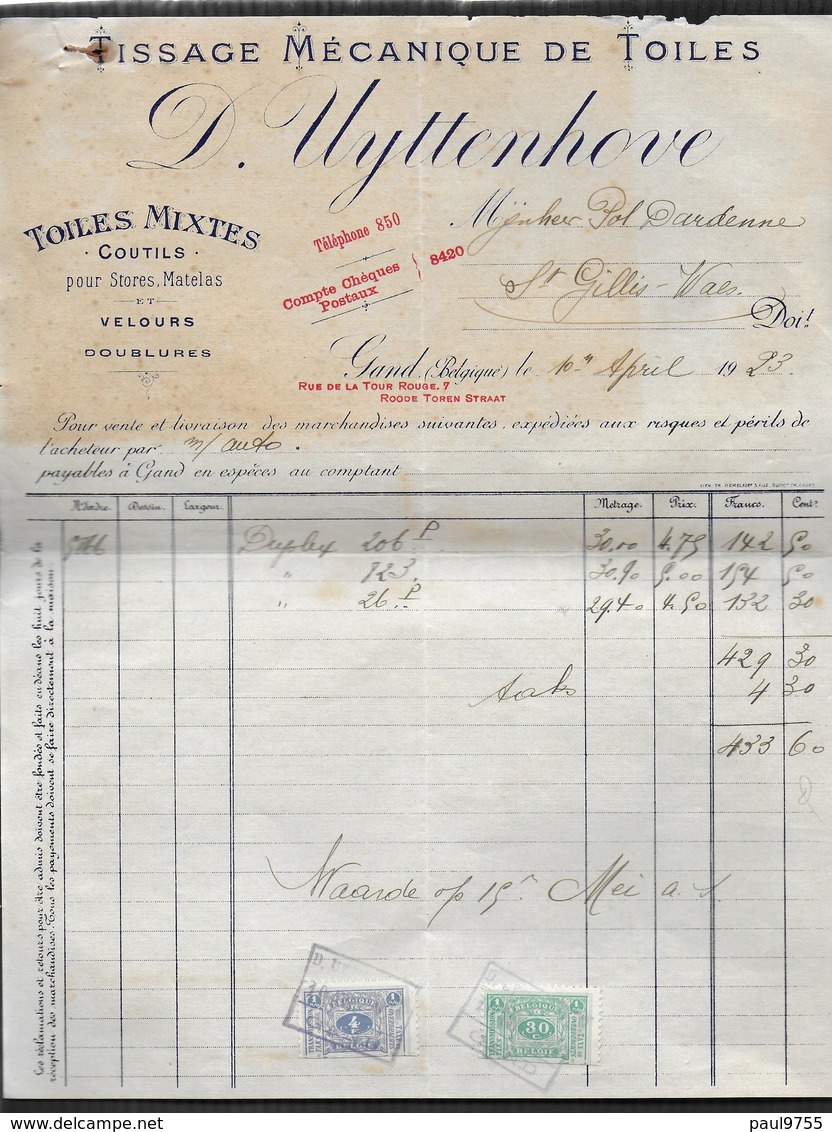 TISSAGE MÉCANIQUE DE TOILES
D. Uyttenhove
TOILES MIXTES
· COUTILS ·
pour Stores, Matelas
ET
VELOURS
DOUBLURES
Téléphone 850
Compte Chèques Postaux } 8420
Mijnheer Pol Dardenne
St Gillis-Waes.
Doit
Gand, (Belgique) le 10n April 1923
RUE DE LA TOUR ROUGE, 7
ROODE TOREN STRAAT
Pour vente et livraison des marchandises suivantes, expédiées aux risques et périls de
l'acheteur par m/ auto.
payables à Gand en espèces au comptant
N° d'ordre. Dessin. Largeur. Métrage. Prix. Francs. Cent.
Duplex 206 P 30.00 4.75 142 50
" 823 30.90 5.00 154 50
" 26 P 29.40 4.50 132 30
429 30
taks 4 30
433 60
Waarde op 15n Mei a.s.
Les réclamations et retours pour être admis doivent être fondés et faits endéans les huit jours de la
réception des marchandises. Tous les payements doivent se faire directement à la maison.
1 BELGIQUE 1
4 F
BELGIË
1 BELGIQUE 1
30 C
BELGIË
paul9755